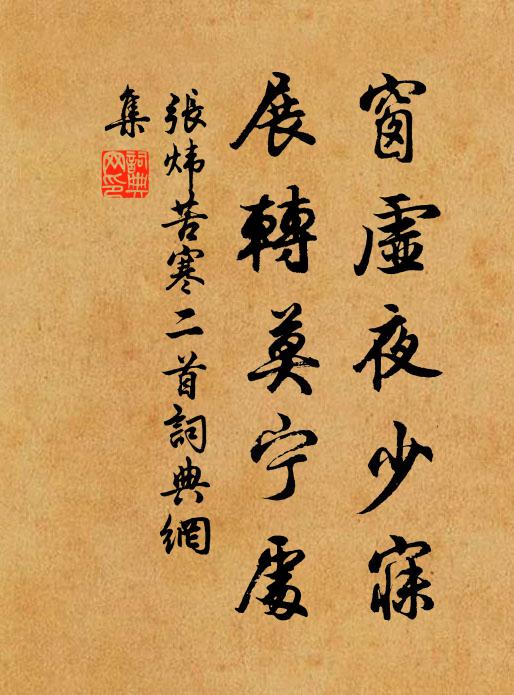 窗虛夜少寐
展轉莫宁處
張煒苦寒二首詞典網
集
詞典
网印